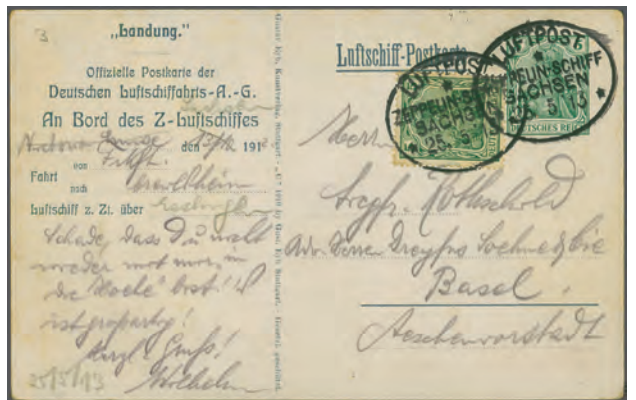 3
„Landung.“
Offizielle Postkarte der
Deutschen Luftschiffahrts-A.-G.
An Bord des Z-Luftschiffes
Sachsen
den 191
von
Fahrt
nach
Luftschiff z. Zt. über
Schade, dass Du nicht
wieder mit mir, in
die Höhe bist! Es
ist großartig!
Herzl. Gruß!
Wilhelm
25/5/13
Luftschiff-Postkarte
LUFTPOST
ZEPPELIN-SCHIFF
SACHSEN
25. 5. 13
LUFTPOST
ZEPPELIN-SCHIFF
SACHSEN
25. 5. 13
DEUTSCHES REICH
Herrn
Dreyfs. Rothschild
Adr. Herren Dreyfus Soehne & Cie
Basel.
Aeschenvorstadt